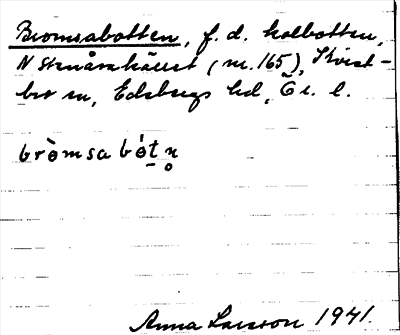 Bromsabotten, f. d. kolbotten,
N Stenåsakärret (nr. 165), Kvist-
bro sn, Edsbergs hd, Ör. l.
bròmsa bót̠n̥
Anna Larsson 1941.